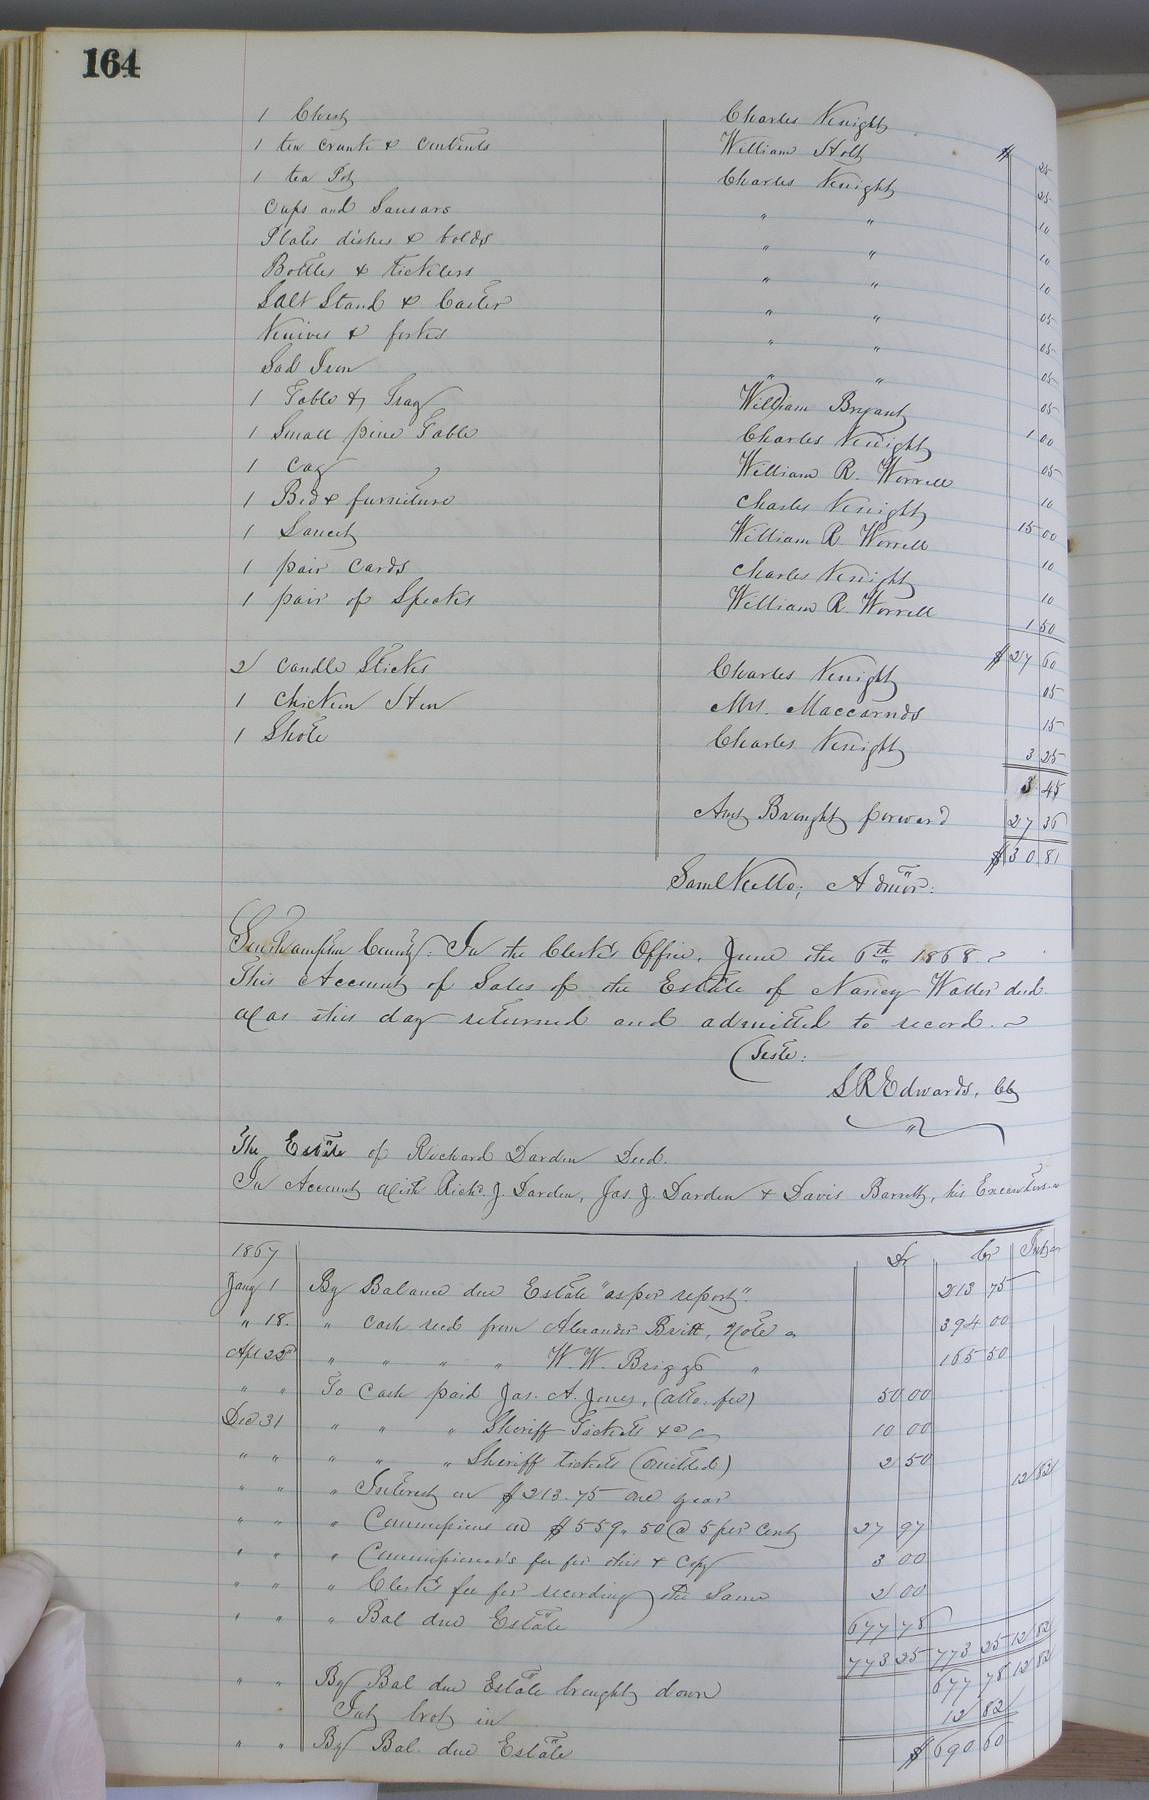 164
1 Chest Charles Knight $ 25
1 tin crank & contents William Holt 25
1 tea Pot Charles Knight 10
Cups and Sausars " " 10
Plates dishes & bolds " " 10
Bottles & ticklers " " 05
Salt Stand & Caster " " 05
Knives & forks " " 05
Sad Iron " " 05
1 Table & Tray William Bryant 1 00
1 Small pine Table Charles Knight 05
1 Cag William R. Worrell 10
1 Bed & furniture Charles Knight 15 00
1 William R. Worrell 10
1 pair Cards Charles Knight 10
1 pair of Specks William R. Worrell 1 50
$ 27 60
2 Candle Sticks Charles Knight 05
1 Chicken Hen Mrs. 15
1 Shote Charles Knight 3 25
3 45
Amt Brought forward 27 36
$ 30 81
Saml Kello, Admor:
Southampton County: In the Clerk's Office, June the 6th 1868.
This Account of Sales of the Estate of Nancy Waller decd.
was this day returned and admitted to record.
Teste:
S R Edwards, CC
The Estate of Richard Darden Decd.
In Account with Richd. J. Darden, Jas. J. Darden & Davis Barrett, his Executors
1867 Dr Cr Int
Jany 1 By Balance due Estate "as per report". 213 75
" 18. " Cash recd from Alexander Britt, Note 394 00
Apl 22d " " " " W. W. Briggs " 165 50
" " To Cash paid Jas. A. Jones, (atto. fee) 50 00
Dec 31 " " " Sheriff Tickets &c 10 00
" " " " " Sheriff tickets (omitted) 2 50
" " " Interest on $213.75 one year 12 82
" " " Commissions on $559.50 @ 5 per Cent 27 97
" " " Commissioner's fee for this & Copy 3 00
" " " Clerk's fee for recording the Same 2 00
" " " Bal due Estate 677 78
773 25 773 25 12 82
" " By Bal due Estate brought down 677 78 12 82
Int brot in 12 82
" " By Bal. due Estate $ 690 60